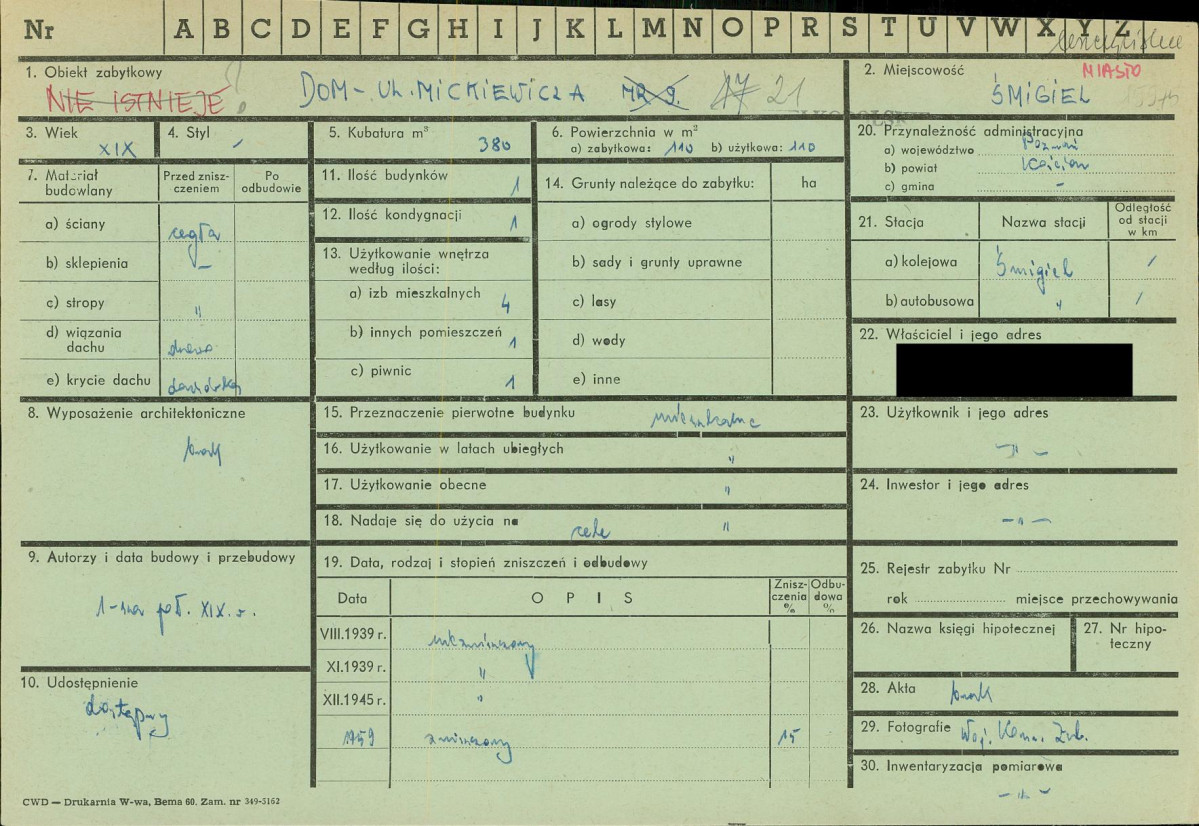 Nr A B C D E F G H I J K L M N O P R S T U V W X Y Z
1. Obiekt zabytkowy
NIE ISTNIEJE ?
DOM - UL. MICKIEWICZA NR 9. 17 21
2. Miejscowość
MIASTO
ŚMIGIEL
3. Wiek
XIX
4. Styl
5. Kubatura m³
380
6. Powierzchnia w m²
a) zabytkowa: 110 b) użytkowa: 110
20. Przynależność administracyjna
a) województwo Poznań
b) powiat Kościan
c) gmina -
7. Materiał budowlany
Przed znisz-
czeniem
Po
odbudowie
a) ściany cegła
b) sklepienia -
c) stropy "
d) wiązania
dachu drewo
e) krycie dachu dachówka
11. Ilość budynków 1
12. Ilość kondygnacji 1
13. Użytkowanie wnętrza
według ilości:
a) izb mieszkalnych 4
b) innych pomieszczeń 1
c) piwnic 1
14. Grunty należące do zabytku: ha
a) ogrody stylowe
b) sady i grunty uprawne
c) lasy
d) wody
e) inne
21. Stacja
Nazwa stacji
Odległość
od stacji
w km
a) kolejowa Śmigiel /
b) autobusowa " /
22. Właściciel i jego adres
8. Wyposażenie architektoniczne
brak
15. Przeznaczenie pierwotne budynku mieszkalne
16. Użytkowanie w latach ubiegłych "
17. Użytkowanie obecne "
18. Nadaje się do użycia na cele "
23. Użytkownik i jego adres
- " -
24. Inwestor i jego adres
- " -
9. Autorzy i data budowy i przebudowy
1-sza poł. XIX w.
19. Data, rodzaj i stopień zniszczeń i odbudowy
Data
OPIS
Znisz-
czenia
%
Odbu-
dowa
%
VIII.1939 r. niezniszczony
XI.1939 r. "
XII.1945 r. "
1959 zniszczony 15
25. Rejestr zabytku Nr
rok miejsce przechowywania
26. Nazwa księgi hipotecznej
27. Nr hipo-
teczny
10. Udostępnienie
dostępny
28. Akta brak
29. Fotografie Woj. Kons. Zab.
30. Inwentaryzacja pomiarowa
- " -
CWD — Drukarnia W-wa, Bema 60. Zam. nr 349-5162